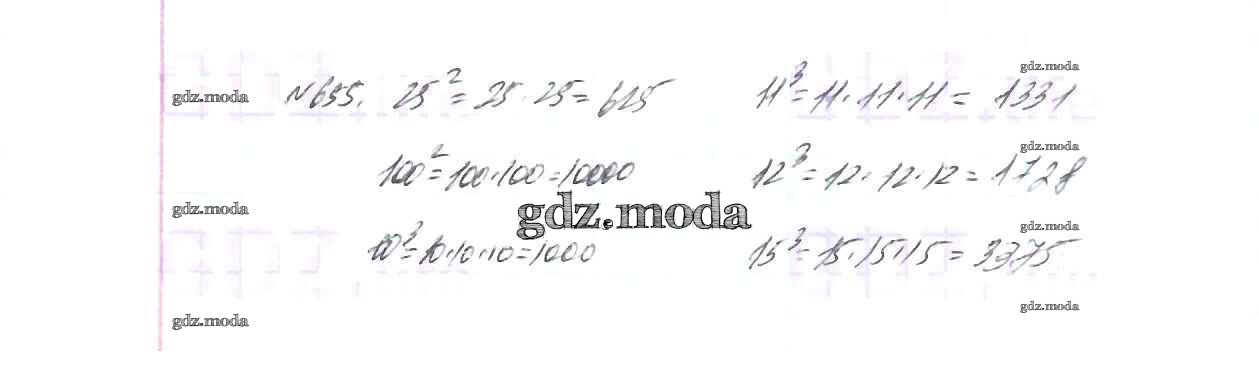 gdz.moda
№655. 25² = 25·25 = 625 11³ = 11·11·11 = 1331
gdz.moda
gdz.moda
100² = 100·100 = 10000 12³ = 12·12·12 = 1728
gdz.moda
gdz.moda
10³ = 10·10·10 = 1000 15³ = 15·15·15 = 3375
gdz.moda
gdz.moda